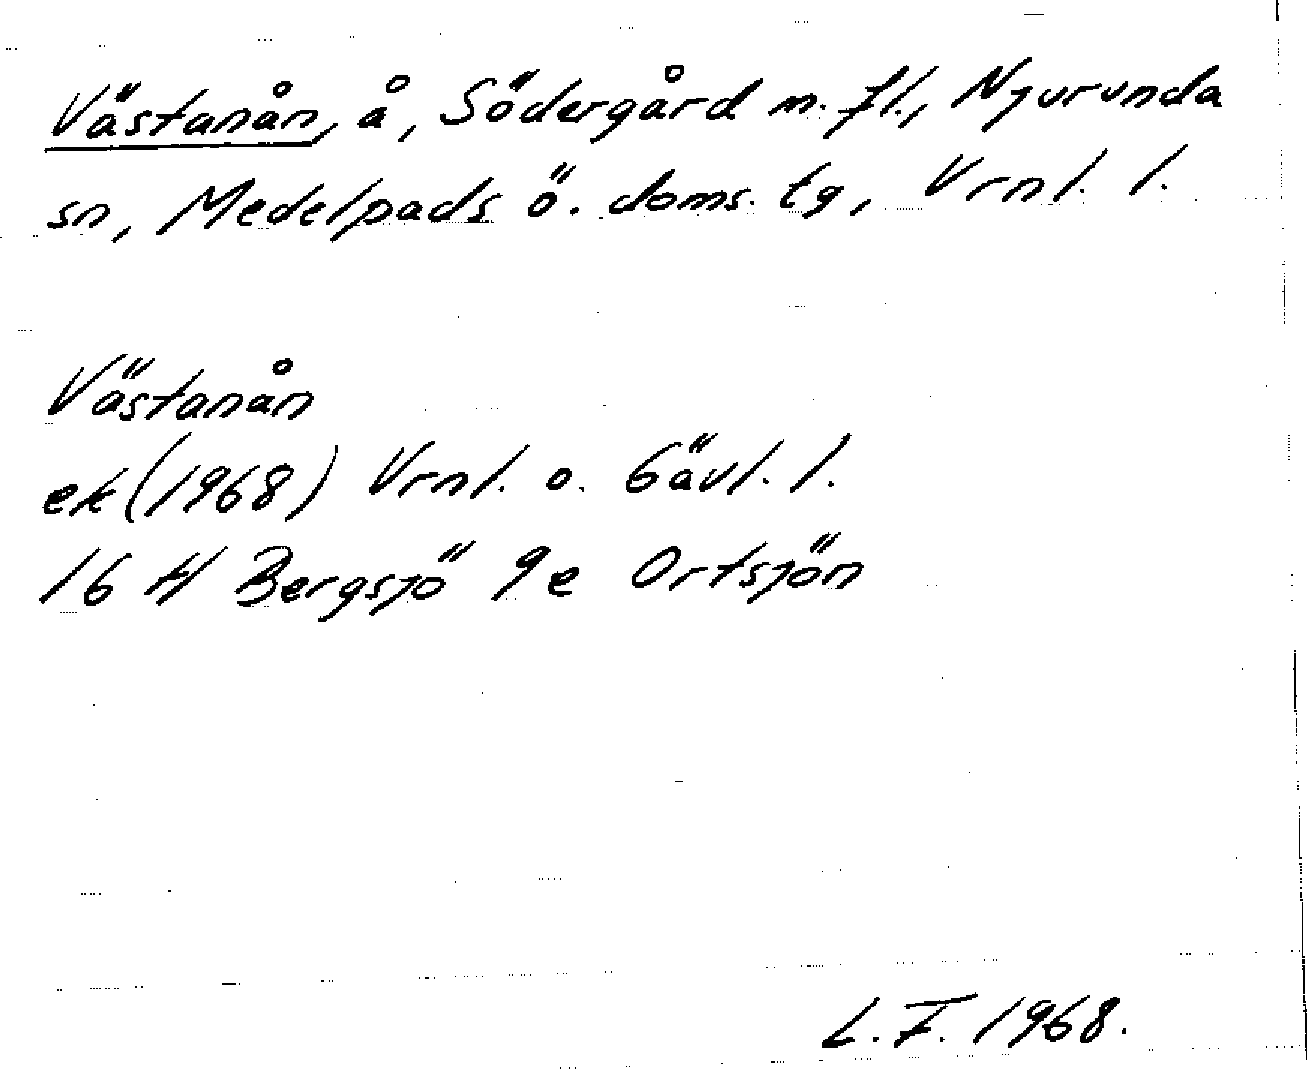 Västanån, å, Södergård m. fl., Njurunda
sn, Medelpads ö. doms. tg, Vrnl. l.
Västanån
ek (1968) Vrnl. o. Gävl. l.
16 H Bergsjö 9e Ortsjön
L. F. 1968.